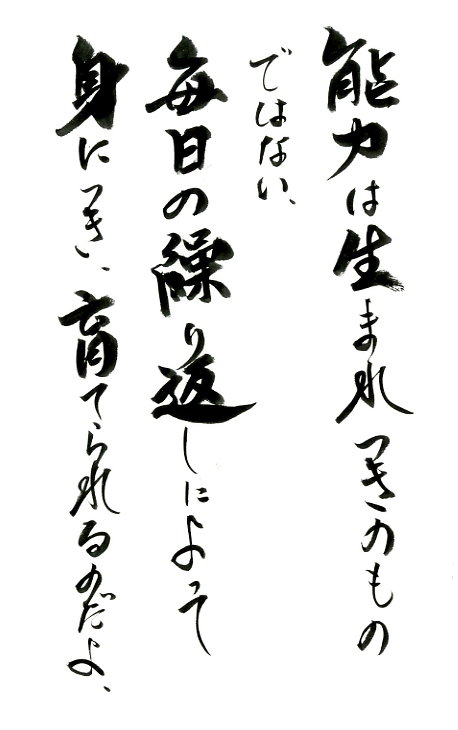 能力は生まれつきのもの
ではない、
毎日の繰り返しによって
身につき、育てられるのだよ、